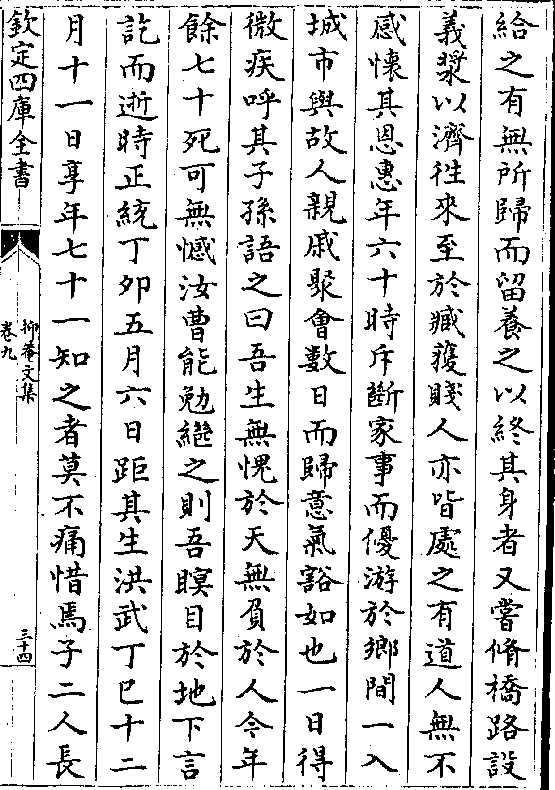 給之有無所歸而留養之以終其身者又嘗脩橋路設
義漿以濟徃來至於臧䕶賤人亦皆處之有道人無不
感懷其恩惠年六十時斥斷家事而優游於鄉間一入
城市與故人親戚聚會數日而歸意氣豁如也一日得
微疾呼其子孫語之曰吾生無愧於天無負於人今年
餘七十死可無憾汝曹能勉繼之則吾瞑目於地下言
訖而逝時正統丁卯五月六日距其生洪武丁巳十二
月十一日享年七十一知之者莫不痛惜焉子二人長
欽定四庫全書
抑菴文集
卷九
三十四